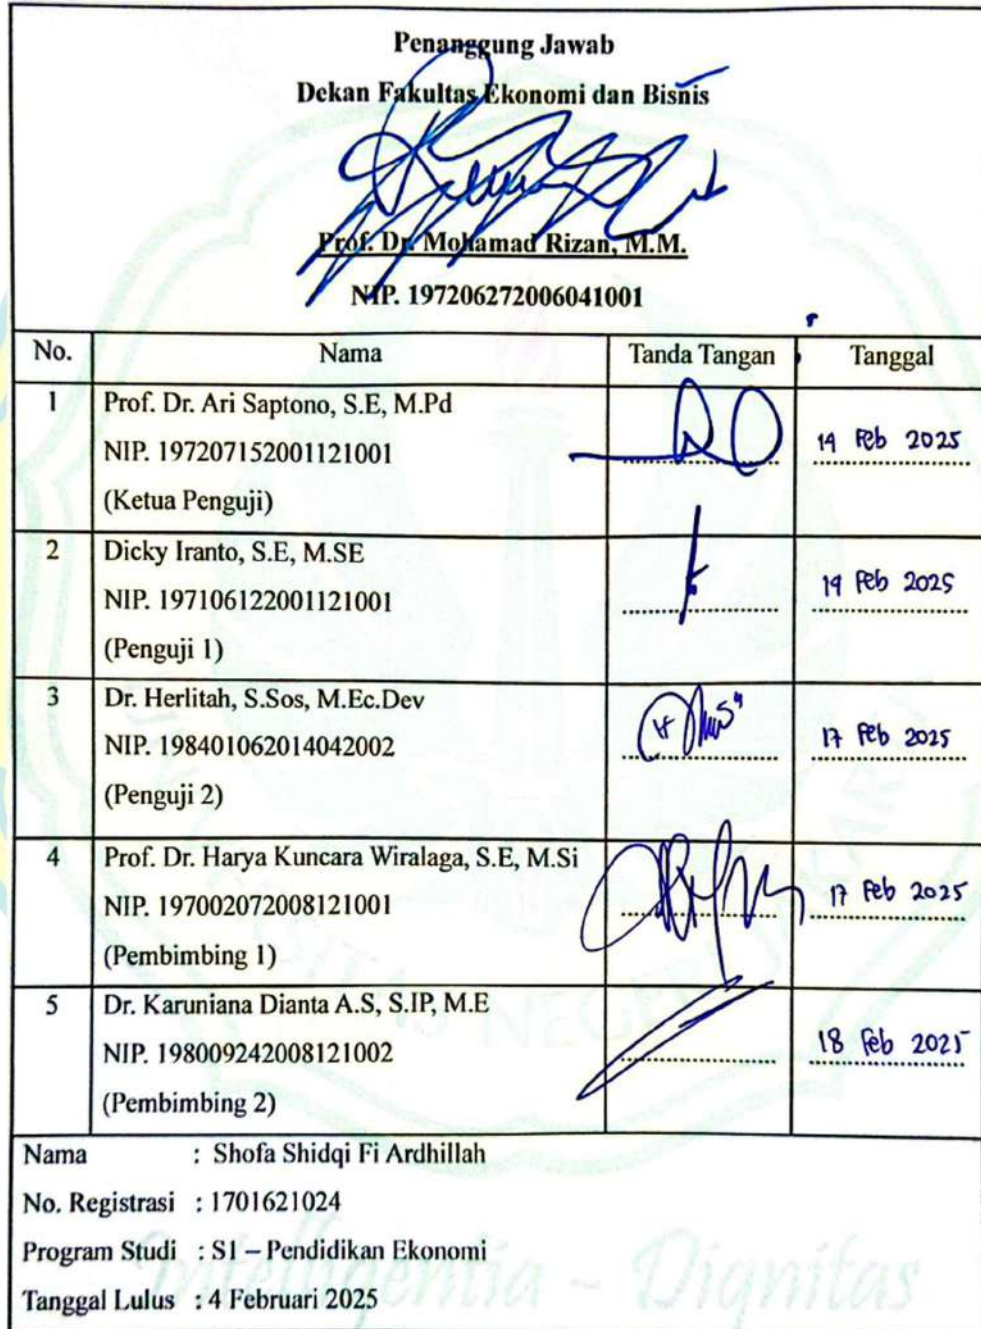 Penanggung Jawab
Dekan Fakultas Ekonomi dan Bisnis
Prof. Dr. Mohamad Rizan, M.M.
NIP. 197206272006041001
No. Nama Tanda Tangan Tanggal
1 Prof. Dr. Ari Saptono, S.E, M.Pd
NIP. 197207152001121001 19 Feb 2025
(Ketua Penguji)
2 Dicky Iranto, S.E, M.SE
NIP. 197106122001121001 19 Feb 2025
(Penguji 1)
3 Dr. Herlitah, S.Sos, M.Ec.Dev
NIP. 198401062014042002 17 Feb 2025
(Penguji 2)
4 Prof. Dr. Harya Kuncara Wiralaga, S.E, M.Si
NIP. 197002072008121001 17 Feb 2025
(Pembimbing 1)
5 Dr. Karuniana Dianta A.S, S.IP, M.E
NIP. 198009242008121002 18 Feb 2025
(Pembimbing 2)
Nama : Shofa Shidqi Fi Ardhillah
No. Registrasi : 1701621024
Program Studi : S1 – Pendidikan Ekonomi
Tanggal Lulus : 4 Februari 2025
Intelligentia – Dignitas